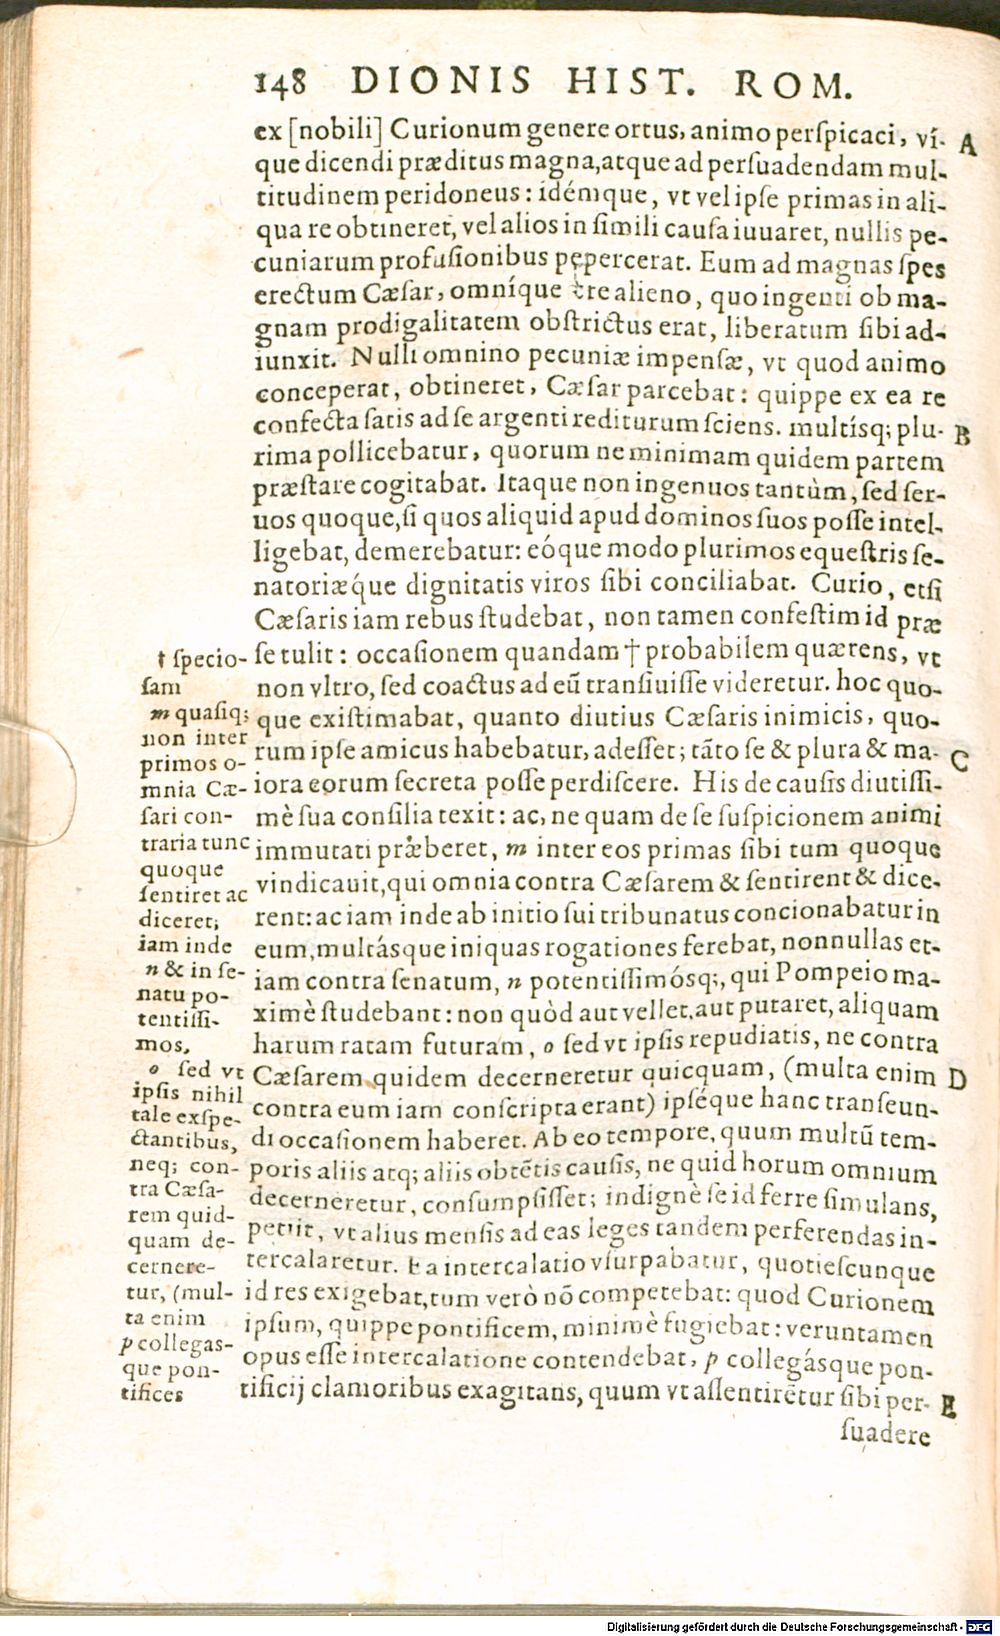 148 DIONIS HIST. ROM.
ex [nobili] Curionum genere ortus, animo perſpicaci, ví-
que dicendi præditus magna, atque ad perſuadendam mul-
titudinem peridoneus: idémque, vt vel ipſe primas in ali-
qua re obtineret, vel alios in ſimili cauſa iuuaret, nullis pe-
cuniarum profuſionibus pepercerat. Eum ad magnas ſpes
erectum Cæſar, omníque ære alieno, quo ingenti ob ma-
gnam prodigalitatem obſtrictus erat, liberatum ſibi ad-
iunxit. Nulli omnino pecuniæ impenſæ, vt quod animo
conceperat, obtineret, Cæſar parcebat: quippe ex ea re
confecta ſatis ad ſe argenti rediturum ſciens. multíſq; plu-
rima pollicebatur, quorum ne minimam quidem partem
præſtare cogitabat. Itaque non ingenuos tantùm, ſed ſer-
uos quoque, ſi quos aliquid apud dominos ſuos poſſe intel-
ligebat, demerebatur: eóque modo plurimos equeſtris ſe-
natoriæque dignitatis viros ſibi conciliabat. Curio, etſi
Cæſaris iam rebus ſtudebat, non tamen confeſtim id præ
ſe tulit: occaſionem quandam † probabilem quærens, vt
non vltro, ſed coactus ad eū tranſiuiſſe videretur. hoc quo-
que exiſtimabat, quanto diutius Cæſaris inimicis, quo-
rum ipſe amicus habebatur, adeſſet; tāto ſe & plura & ma-
iora eorum ſecreta poſſe perdiſcere. His de cauſis diutiſſi-
mè ſua conſilia texit: ac, ne quam de ſe ſuſpicionem animi
immutati præberet, m inter eos primas ſibi tum quoque
vindicauit, qui omnia contra Cæſarem & ſentirent & dice-
rent: ac iam inde ab initio ſui tribunatus concionabatur in
eum, multáſque iniquas rogationes ferebat, nonnullas et-
iam contra ſenatum, n potentiſſimóſq;, qui Pompeio ma-
ximè ſtudebant: non quòd aut vellet, aut putaret, aliquam
harum ratam futuram, o ſed vt ipſis repudiatis, ne contra
Cæſarem quidem decerneretur quicquam, (multa enim
contra eum iam conſcripta erant) ipſéque hanc tranſeun-
di occaſionem haberet. Ab eo tempore, quum multū tem-
poris aliis atq; aliis obtētis cauſis, ne quid horum omnium
decerneretur, conſumpſiſſet; indignè ſe id ferre ſimulans,
petiit, vt alius menſis ad eas leges tandem perferendas in-
tercalaretur. Ea intercalatio vſurpabatur, quotieſcunque
id res exigebat, tum verò nō competebat: quod Curionem
ipſum, quippe pontificem, minimè fugiebat: veruntamen
opus eſſe intercalatione contendebat, p collegáſque pon-
tificij clamoribus exagitans, quum vt aſſentirētur ſibi per-
ſuadere
A
B
C
D
E
† ſpecio-
ſam
m quaſiq;
non inter
primos o-
mnia Cæ-
ſari con-
traria tunc
quoque
ſentiret ac
diceret;
iam inde
n & in ſe-
natu po-
tentiſſi-
mos,
o ſed vt
ipſis nihil
tale exſpe-
ctantibus,
neq; con-
tra Cæſa-
rem quid-
quam de-
cernere-
tur, (mul-
ta enim
p collegas-
que pon-
tifices
Digitalisierung gefördert durch die Deutsche Forschungsgemeinschaft - DFG